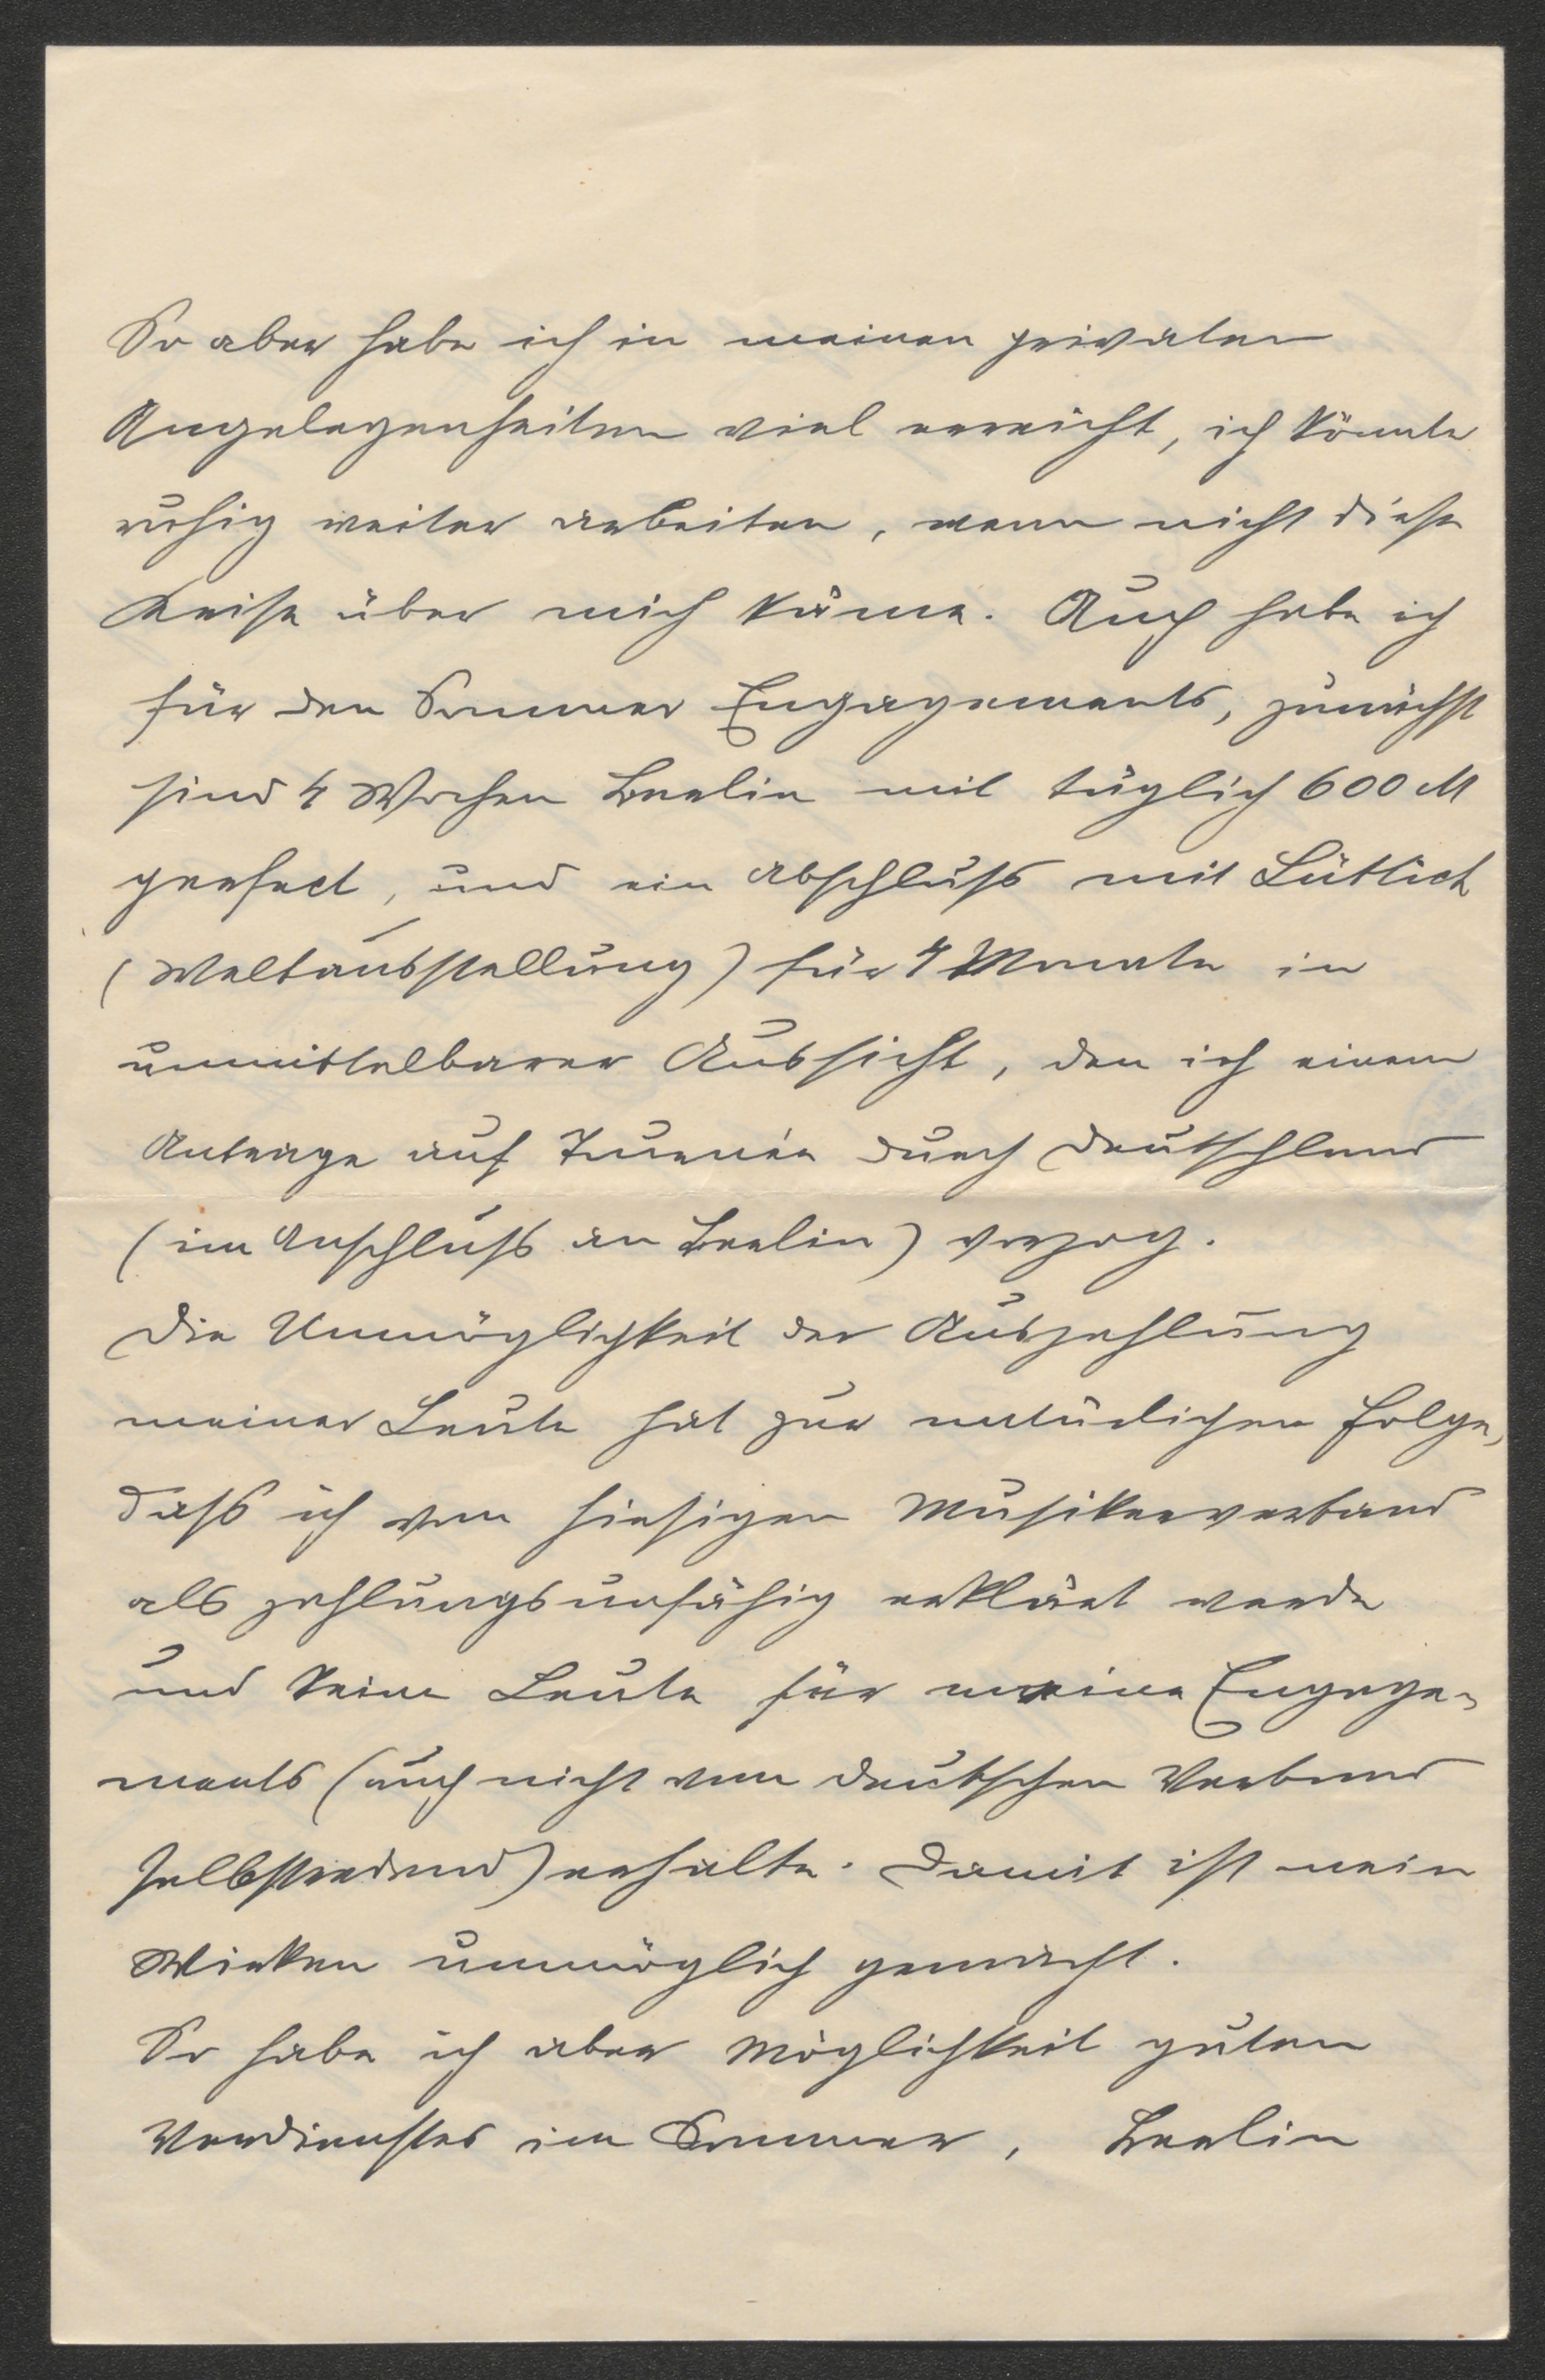 So aber habe ich in meinen privaten
Angelegenheiten viel erreicht, ich könnte
ruhig weiter arbeiten, wenn nicht diese
Krise über mich käme. Auch habe ich
für den Sommer Engagements, zunächst
sind 4 Wochen Berlin mit täglich 600 M
perfect, und ein Abschluss mit Lüttich
(Weltausstellung) für 4 Monate in
unmittelbarer Aussicht, den ich einem
Antrage auf Tournée durch Deutschland
(im Anschluss an Berlin) vorzog.
Die Unmöglichkeit der Auszahlung
meiner Leute hat zur natürlichen Folge,
dass ich vom hiesigen Musikerverband
als zahlungsunfähig erklärt werde
und keine Leute für meine Engage-
ments (auch nicht vom deutschen Verband
selbstredend) erhalte. Damit ist mein
Wirken unmöglich gemacht.
So habe ich aber Möglichkeit guten
Verdienstes im Sommer, Berlin